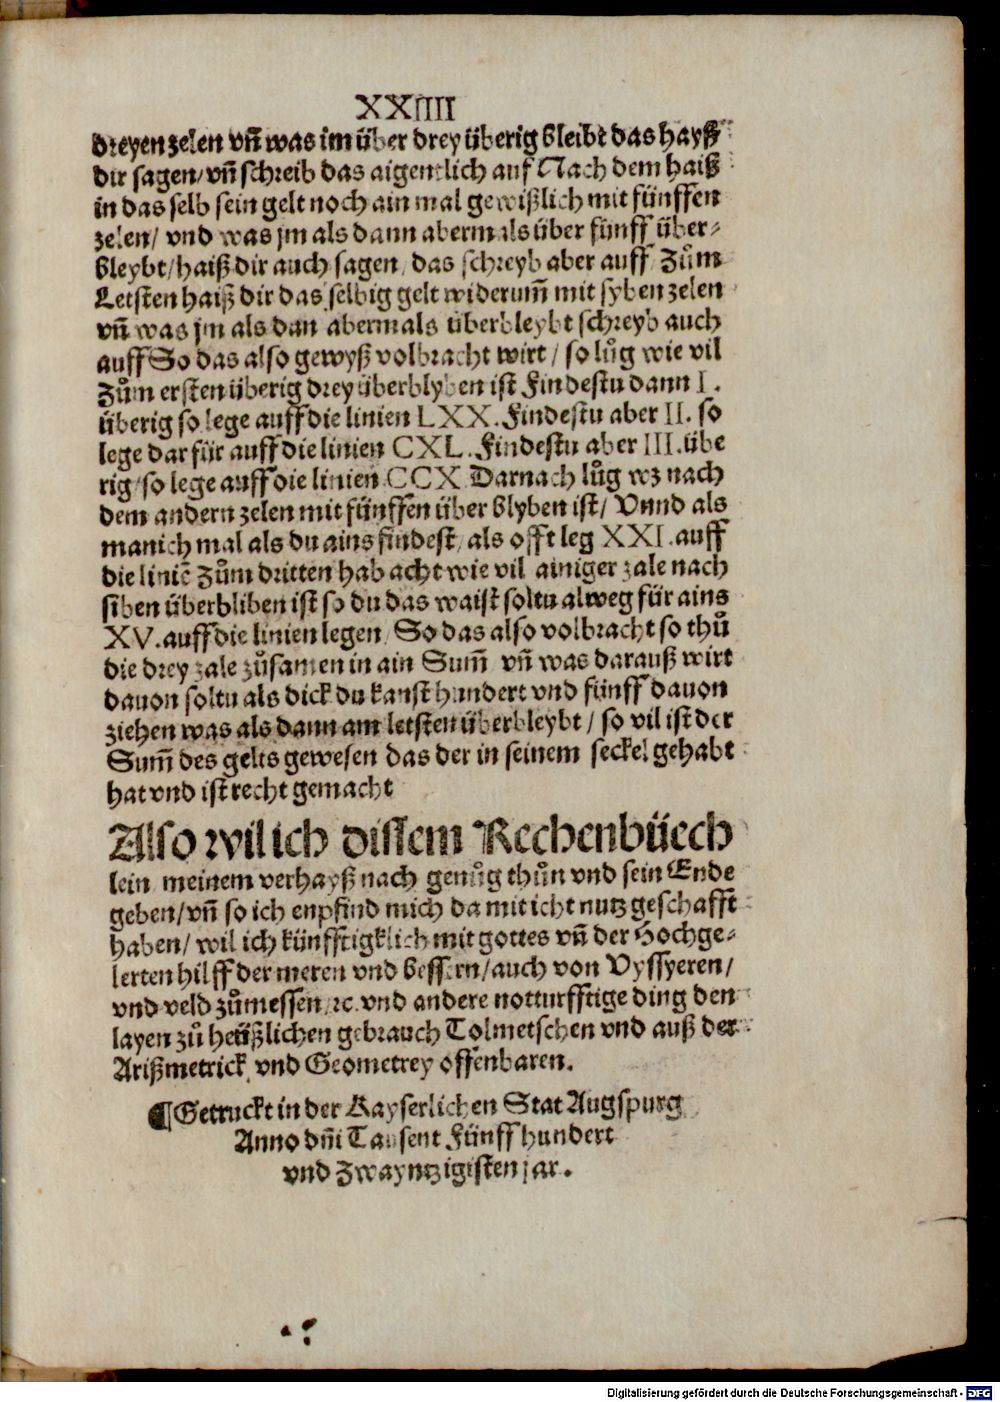 XXIIII
dreyen zelen vñ was im über drey überig bleibt das hayß
dir sagen/ vñ schreib das aigentlich auf Nach dem haiß
in das selb sein gelt noch ain mal gewißlich mit fünffen
zelen/ vnd was jm als dann abermals über fünff über⸗
bleybt/ haiß dir auch sagen/ das schreyb aber auff Zům
Letsten haiß dir das selbig gelt widerum̃ mit syben zelen
vñ was jm als dan abermals überbleybt schreyb auch
auff So das also gewyß volbracht wirt/ so lůg wie vil
Zům ersten überig drey überblyben ist Findestu dann I.
überig so lege auff die linien LXX. Findestu aber II. so
lege dar für auff die linien CXL. Findestu aber III. übe
rig/ so lege auff die linien CCX Darnach lůg wz nach
dem andern zelen mit fünffen über blyben ist/ Vnnd als
manich mal als du ains findest/ als offt leg XXI. auff
die liniē Zům dritten hab acht wie vil ainiger zale nach
siben überbliben ist so du das waist soltu alweg für ains
XV. auff die linien legen/ So das also volbracht so thů
die drey zale zůsamen in ain Sum̃ vñ was darauß wirt
dauon soltu als dick du kanst hundert vnd fünff dauon
ziehen was als dann am letsten überbleybt/ so vil ist der
Sum̃ des gelts gewesen das der in seinem seckel gehabt
hat vnd ist recht gemacht
Also wil ich dissem Rechenbüech
lein meinem verhayß nach genůg thůn vnd sein Ende
geben/ vñ so ich enpfind mich da mit icht nutz geschafft
haben/ wil ich künfftigklich mit gottes vñ der Hochge⸗
lerten hilff der meren vnd bessern/ auch von Vyssyeren/
vnd veld zůmessen ⁊c. vnd andere notturfftige ding den
layen zů heüßlichen gebrauch Tolmetschen vnd auß der
Arißmetrick vnd Geometrey offenbaren.
¶ Getruckt in der Kayserlichen Stat Augspurg
Anno dñi Tausent Fünffhundert
vnd Zwayntzigisten jar.
Digitalisierung gefördert durch die Deutsche Forschungsgemeinschaft - DFG